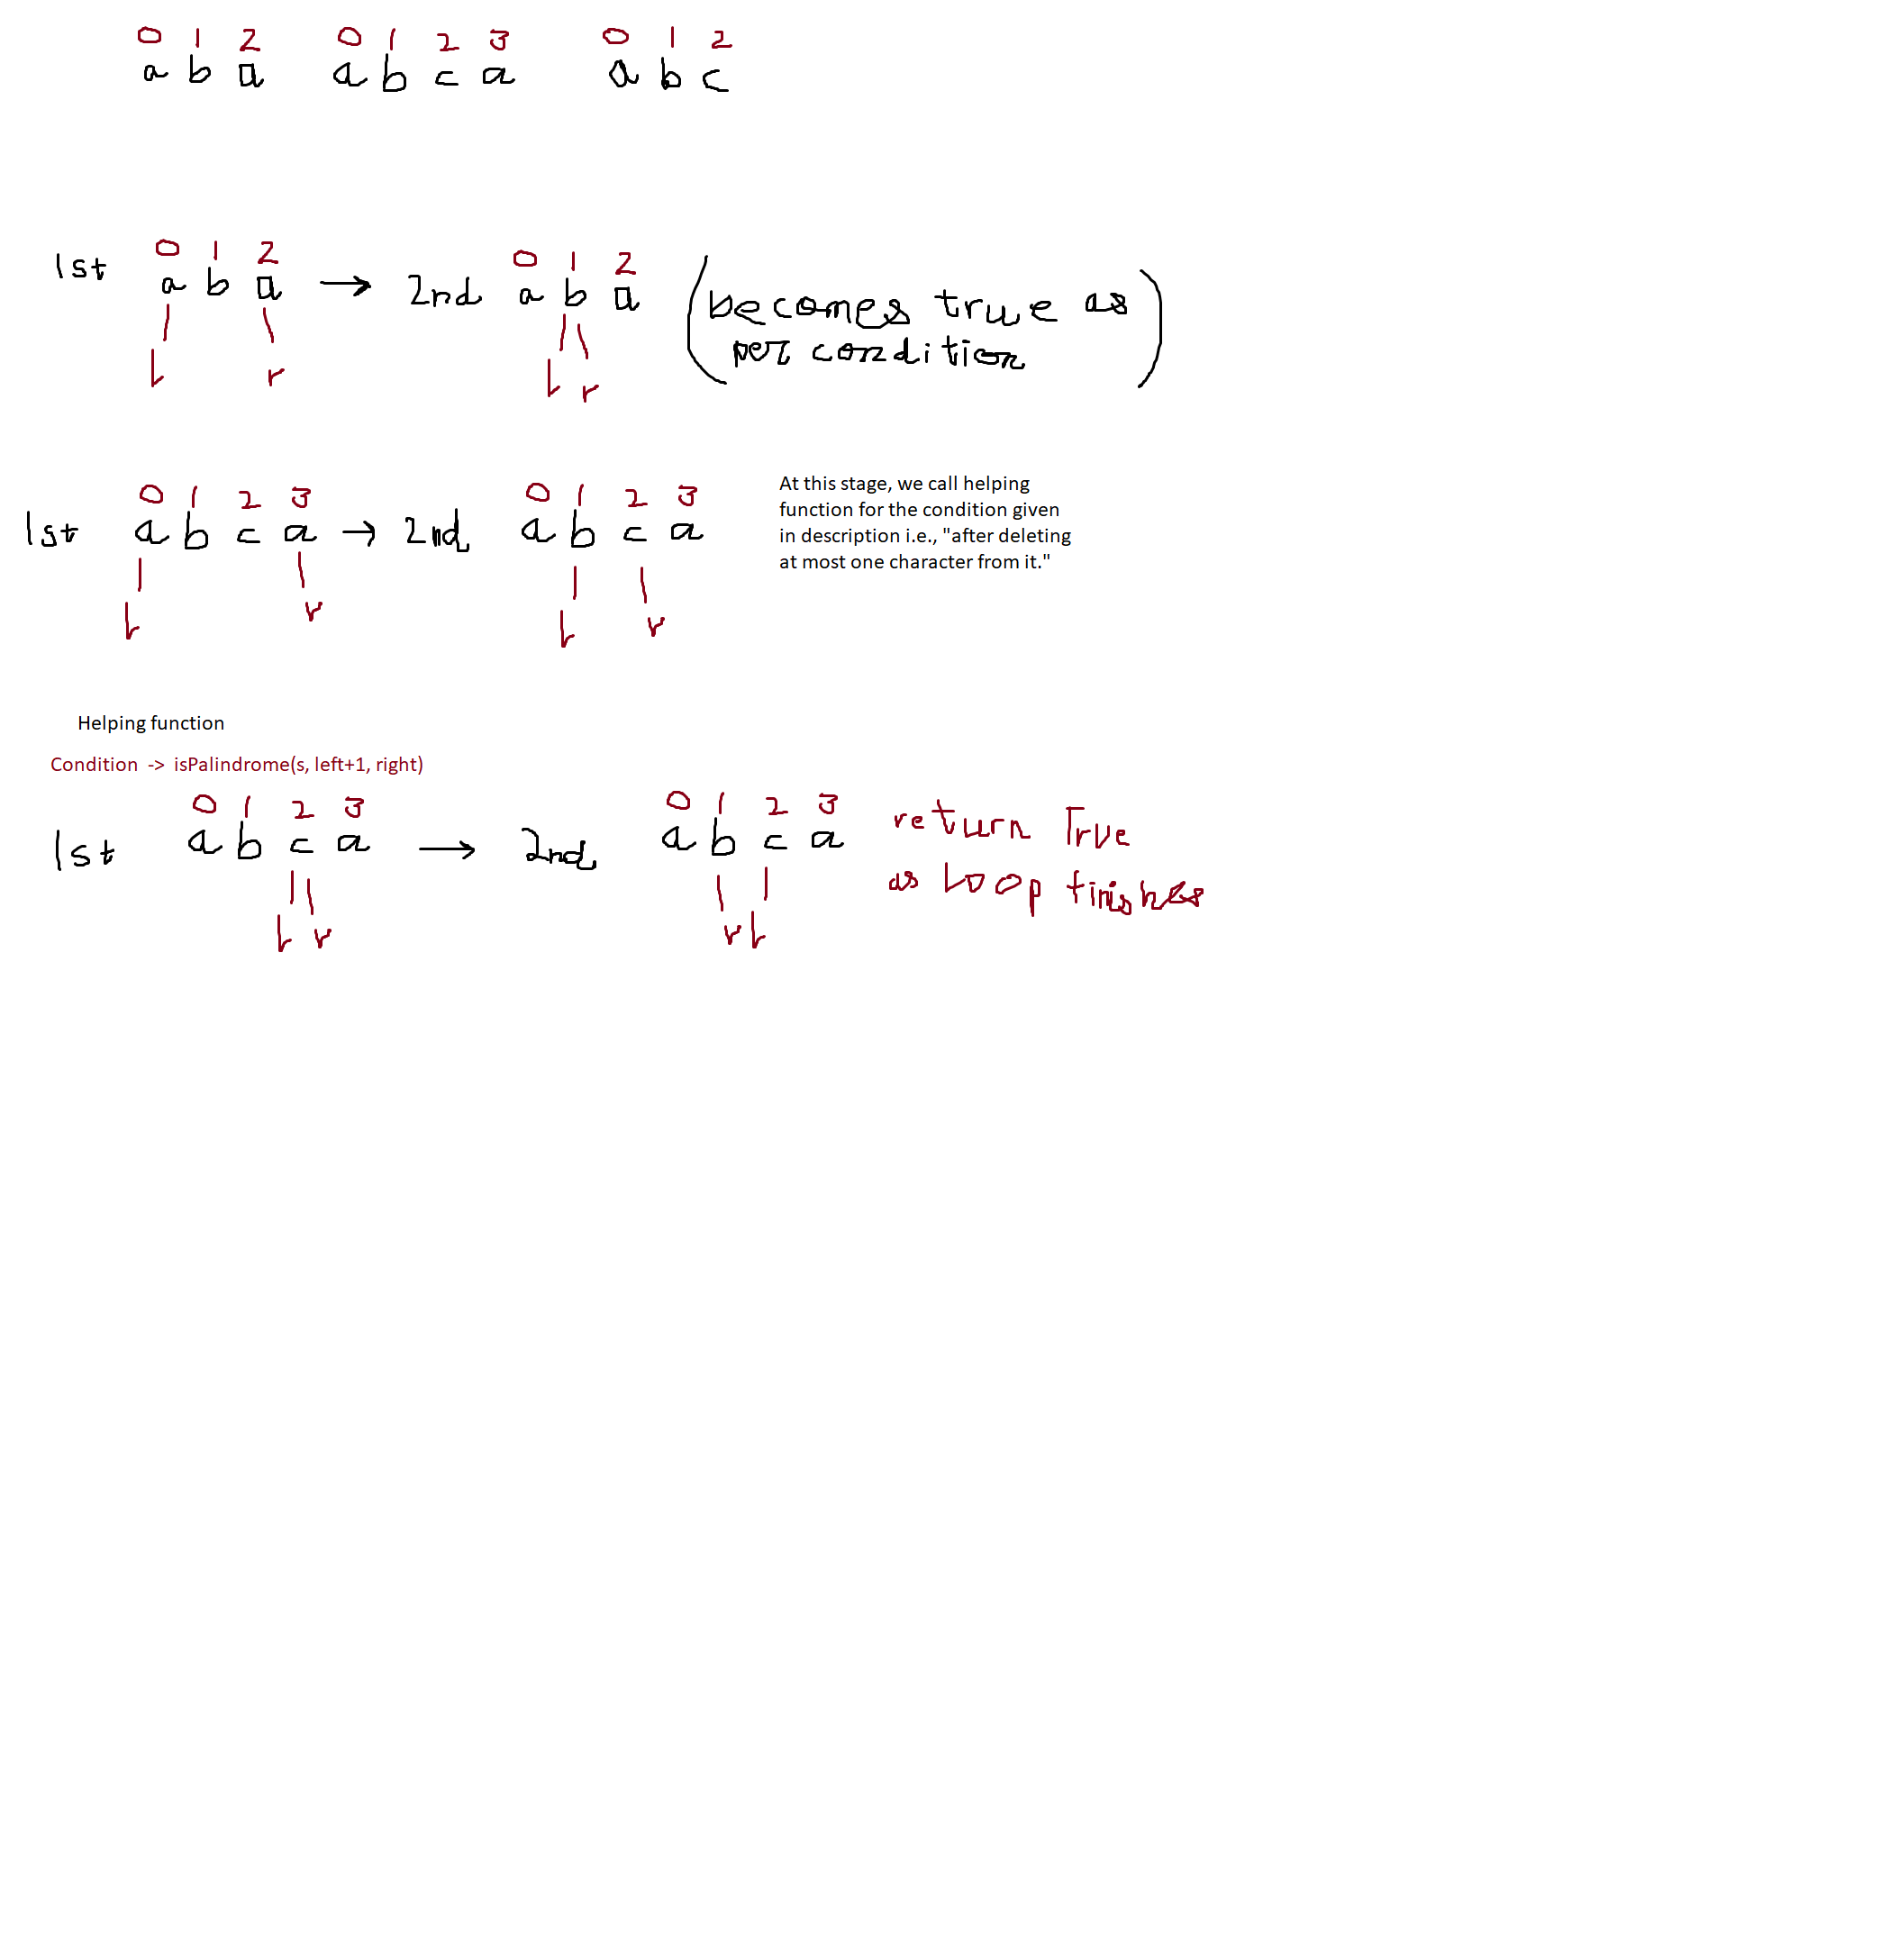 0 1 2 0 1 2 3 0 1 2
a b a a b c a a b c
0 1 2 0 1 2
1st a b a → 2nd a b a (becomes true as
per condition)
l r l r
0 1 2 3 0 1 2 3
1st a b c a → 2nd a b c a
l r l r
At this stage, we call helping
function for the condition given
in description i.e., "after deleting
at most one character from it."
Helping function
Condition -> isPalindrome(s, left+1, right)
0 1 2 3 0 1 2 3
1st a b c a → 2nd a b c a
l r r l
return True
as loop finishes